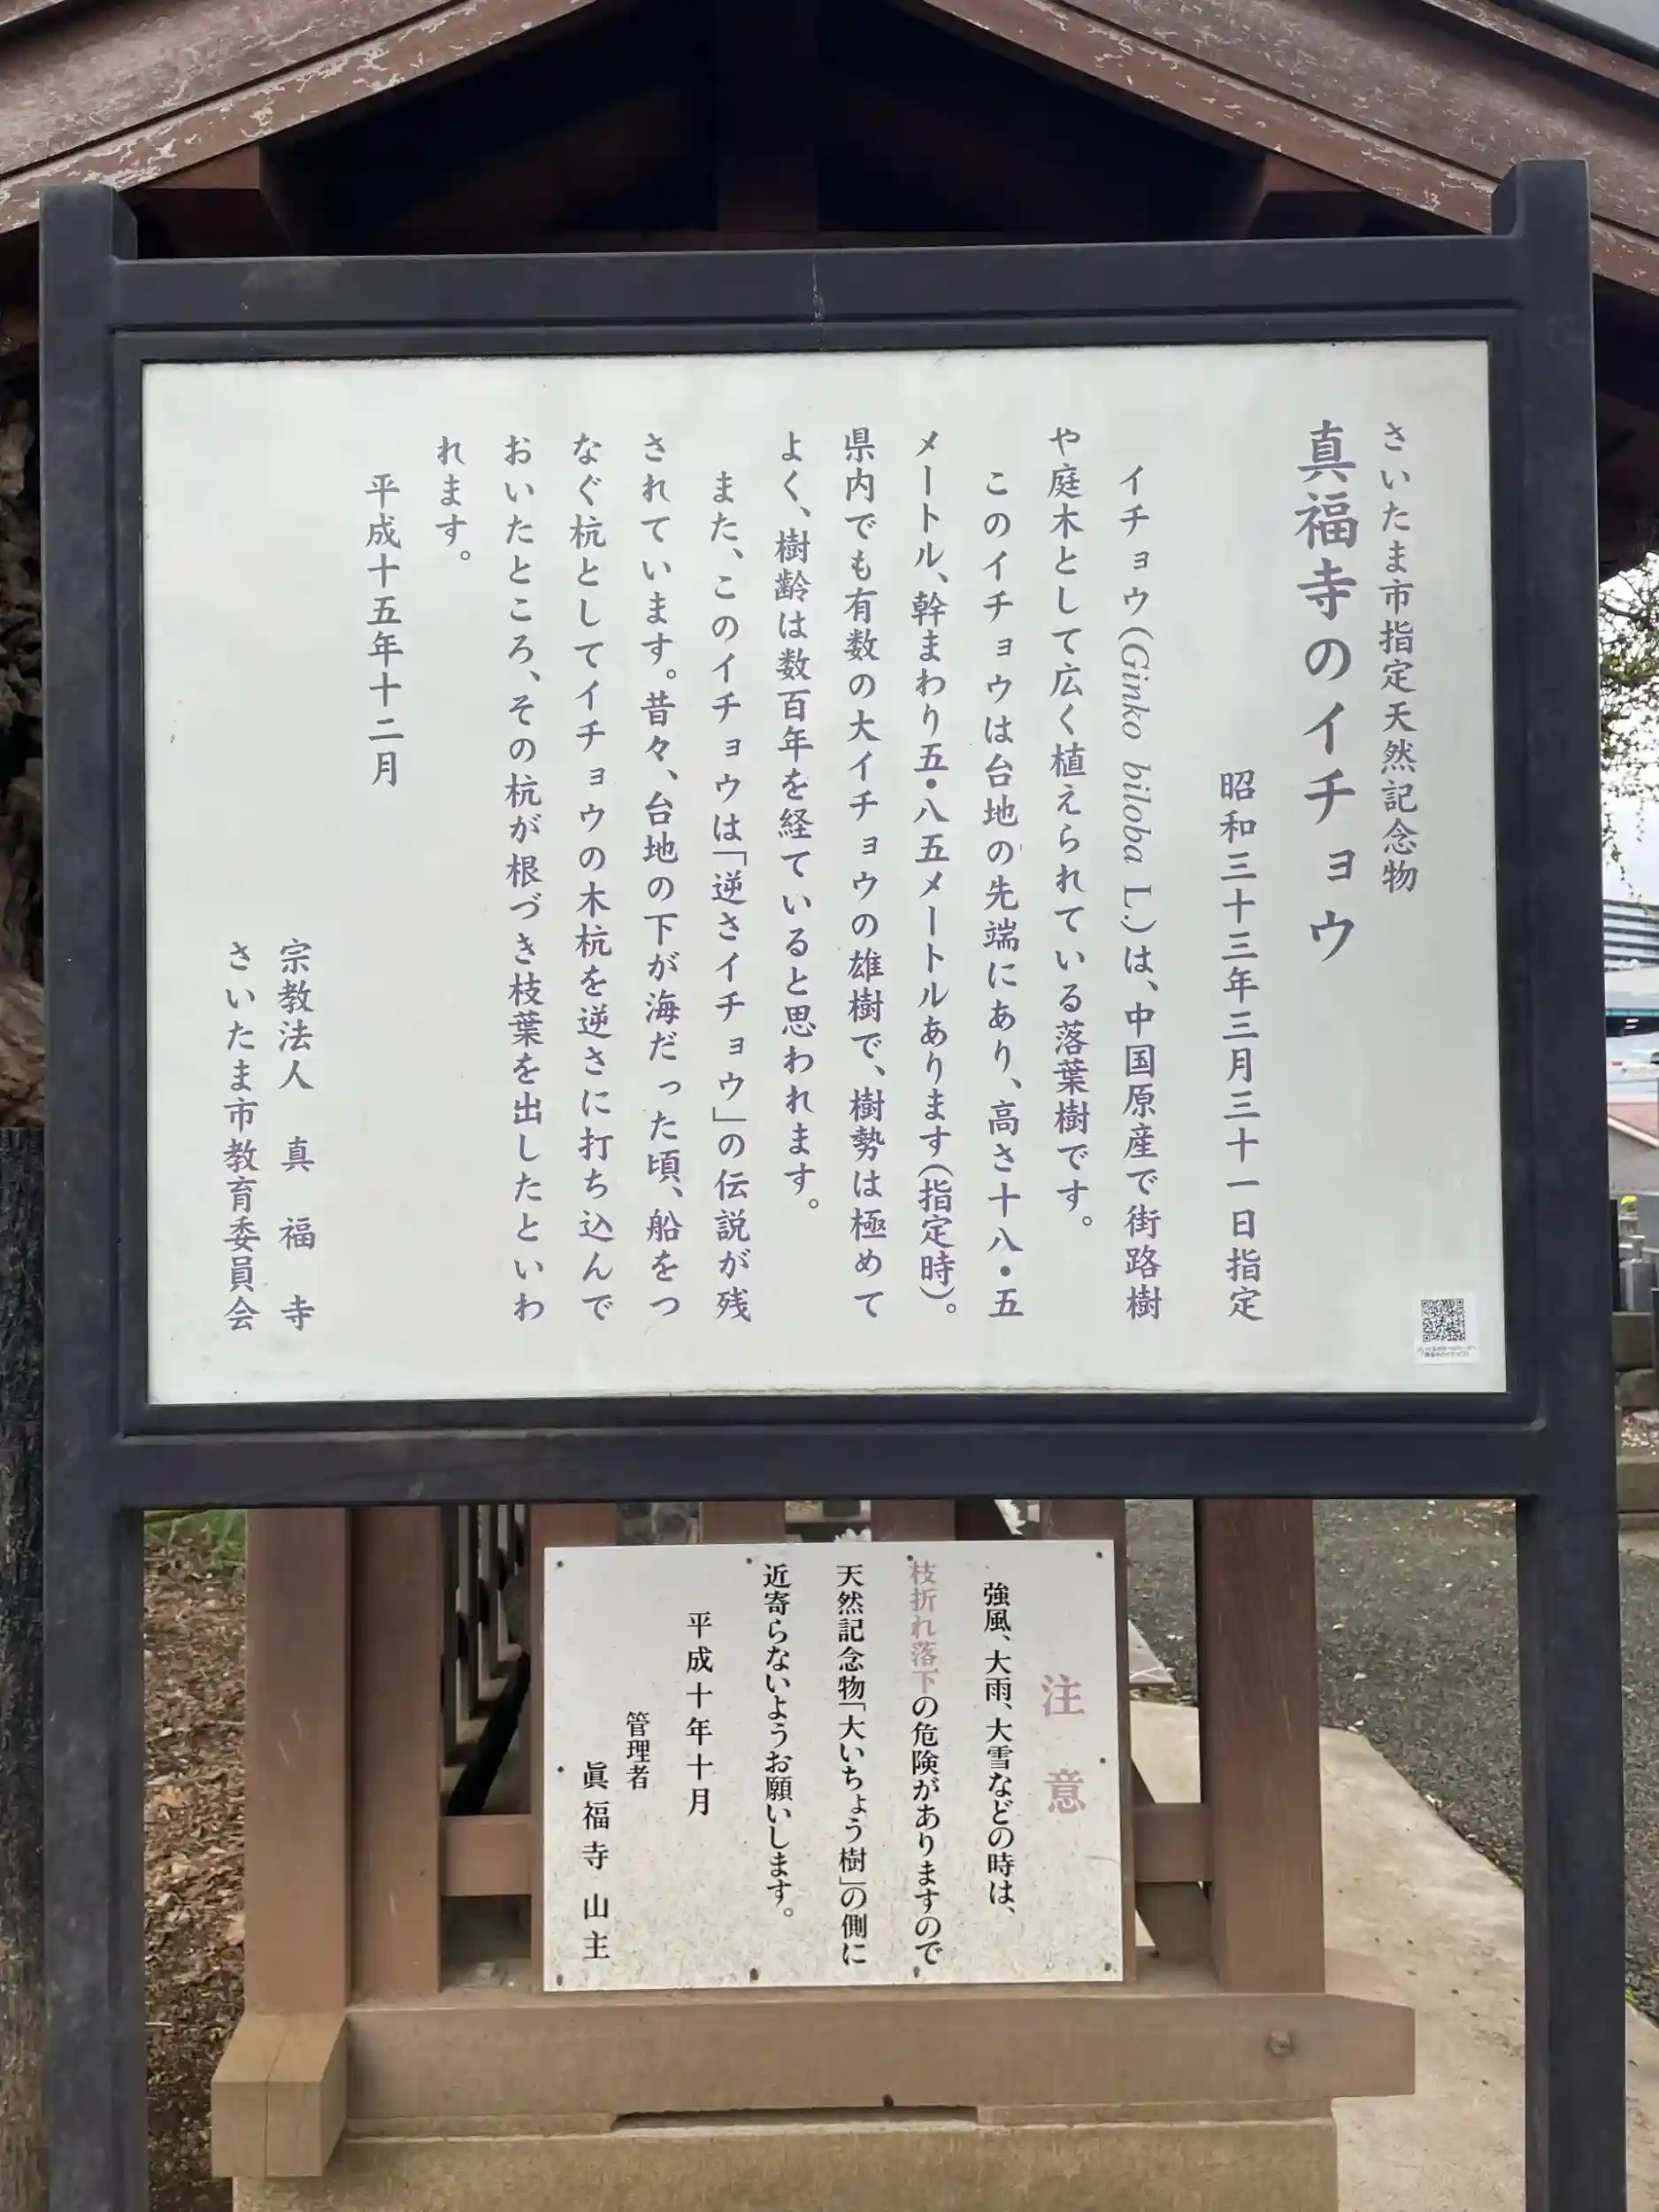 さいたま市指定天然記念物
真福寺のイチョウ
昭和三十三年三月三十一日指定
イチョウ(Ginko biloba L.)は、中国原産で街路樹
や庭木として広く植えられている落葉樹です。
このイチョウは台地の先端にあり、高さ十八・五
メートル、幹まわり五・八五メートルあります(指定時)。
県内でも有数の大イチョウの雄樹で、樹勢は極めて
よく、樹齢は数百年を経ていると思われます。
また、このイチョウは「逆さイチョウ」の伝説が残
されています。昔々、台地の下が海だった頃、船をつ
なぐ杭としてイチョウの木杭を逆さに打ち込んで
おいたところ、その杭が根づき枝葉を出したといわ
れます。
平成十五年十二月
宗教法人 真福寺
さいたま市教育委員会
注意
強風、大雨、大雪などの時は、
枝折れ落下の危険がありますので
天然記念物「大いちょう樹」の側に
近寄らないようお願いします。
平成十年十月
管理者
眞福寺 山主